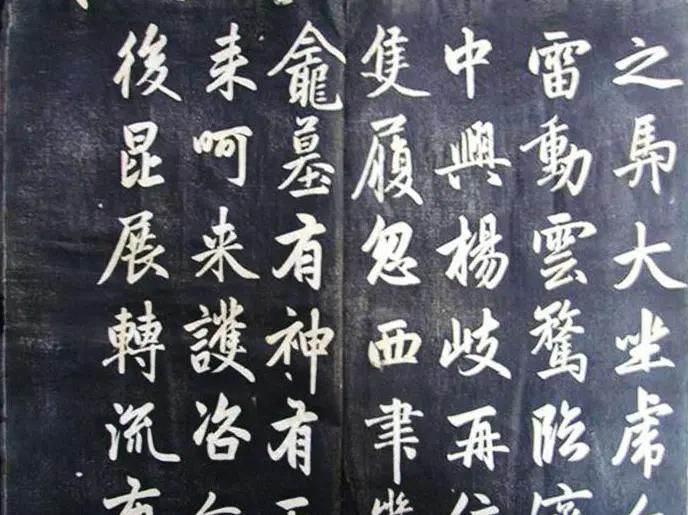 之馬大坐虎
雷動雲騖臨濟
中興楊岐再
隻履忽西聿
龕墓有神有
来呵来護咨
後昆展轉流布